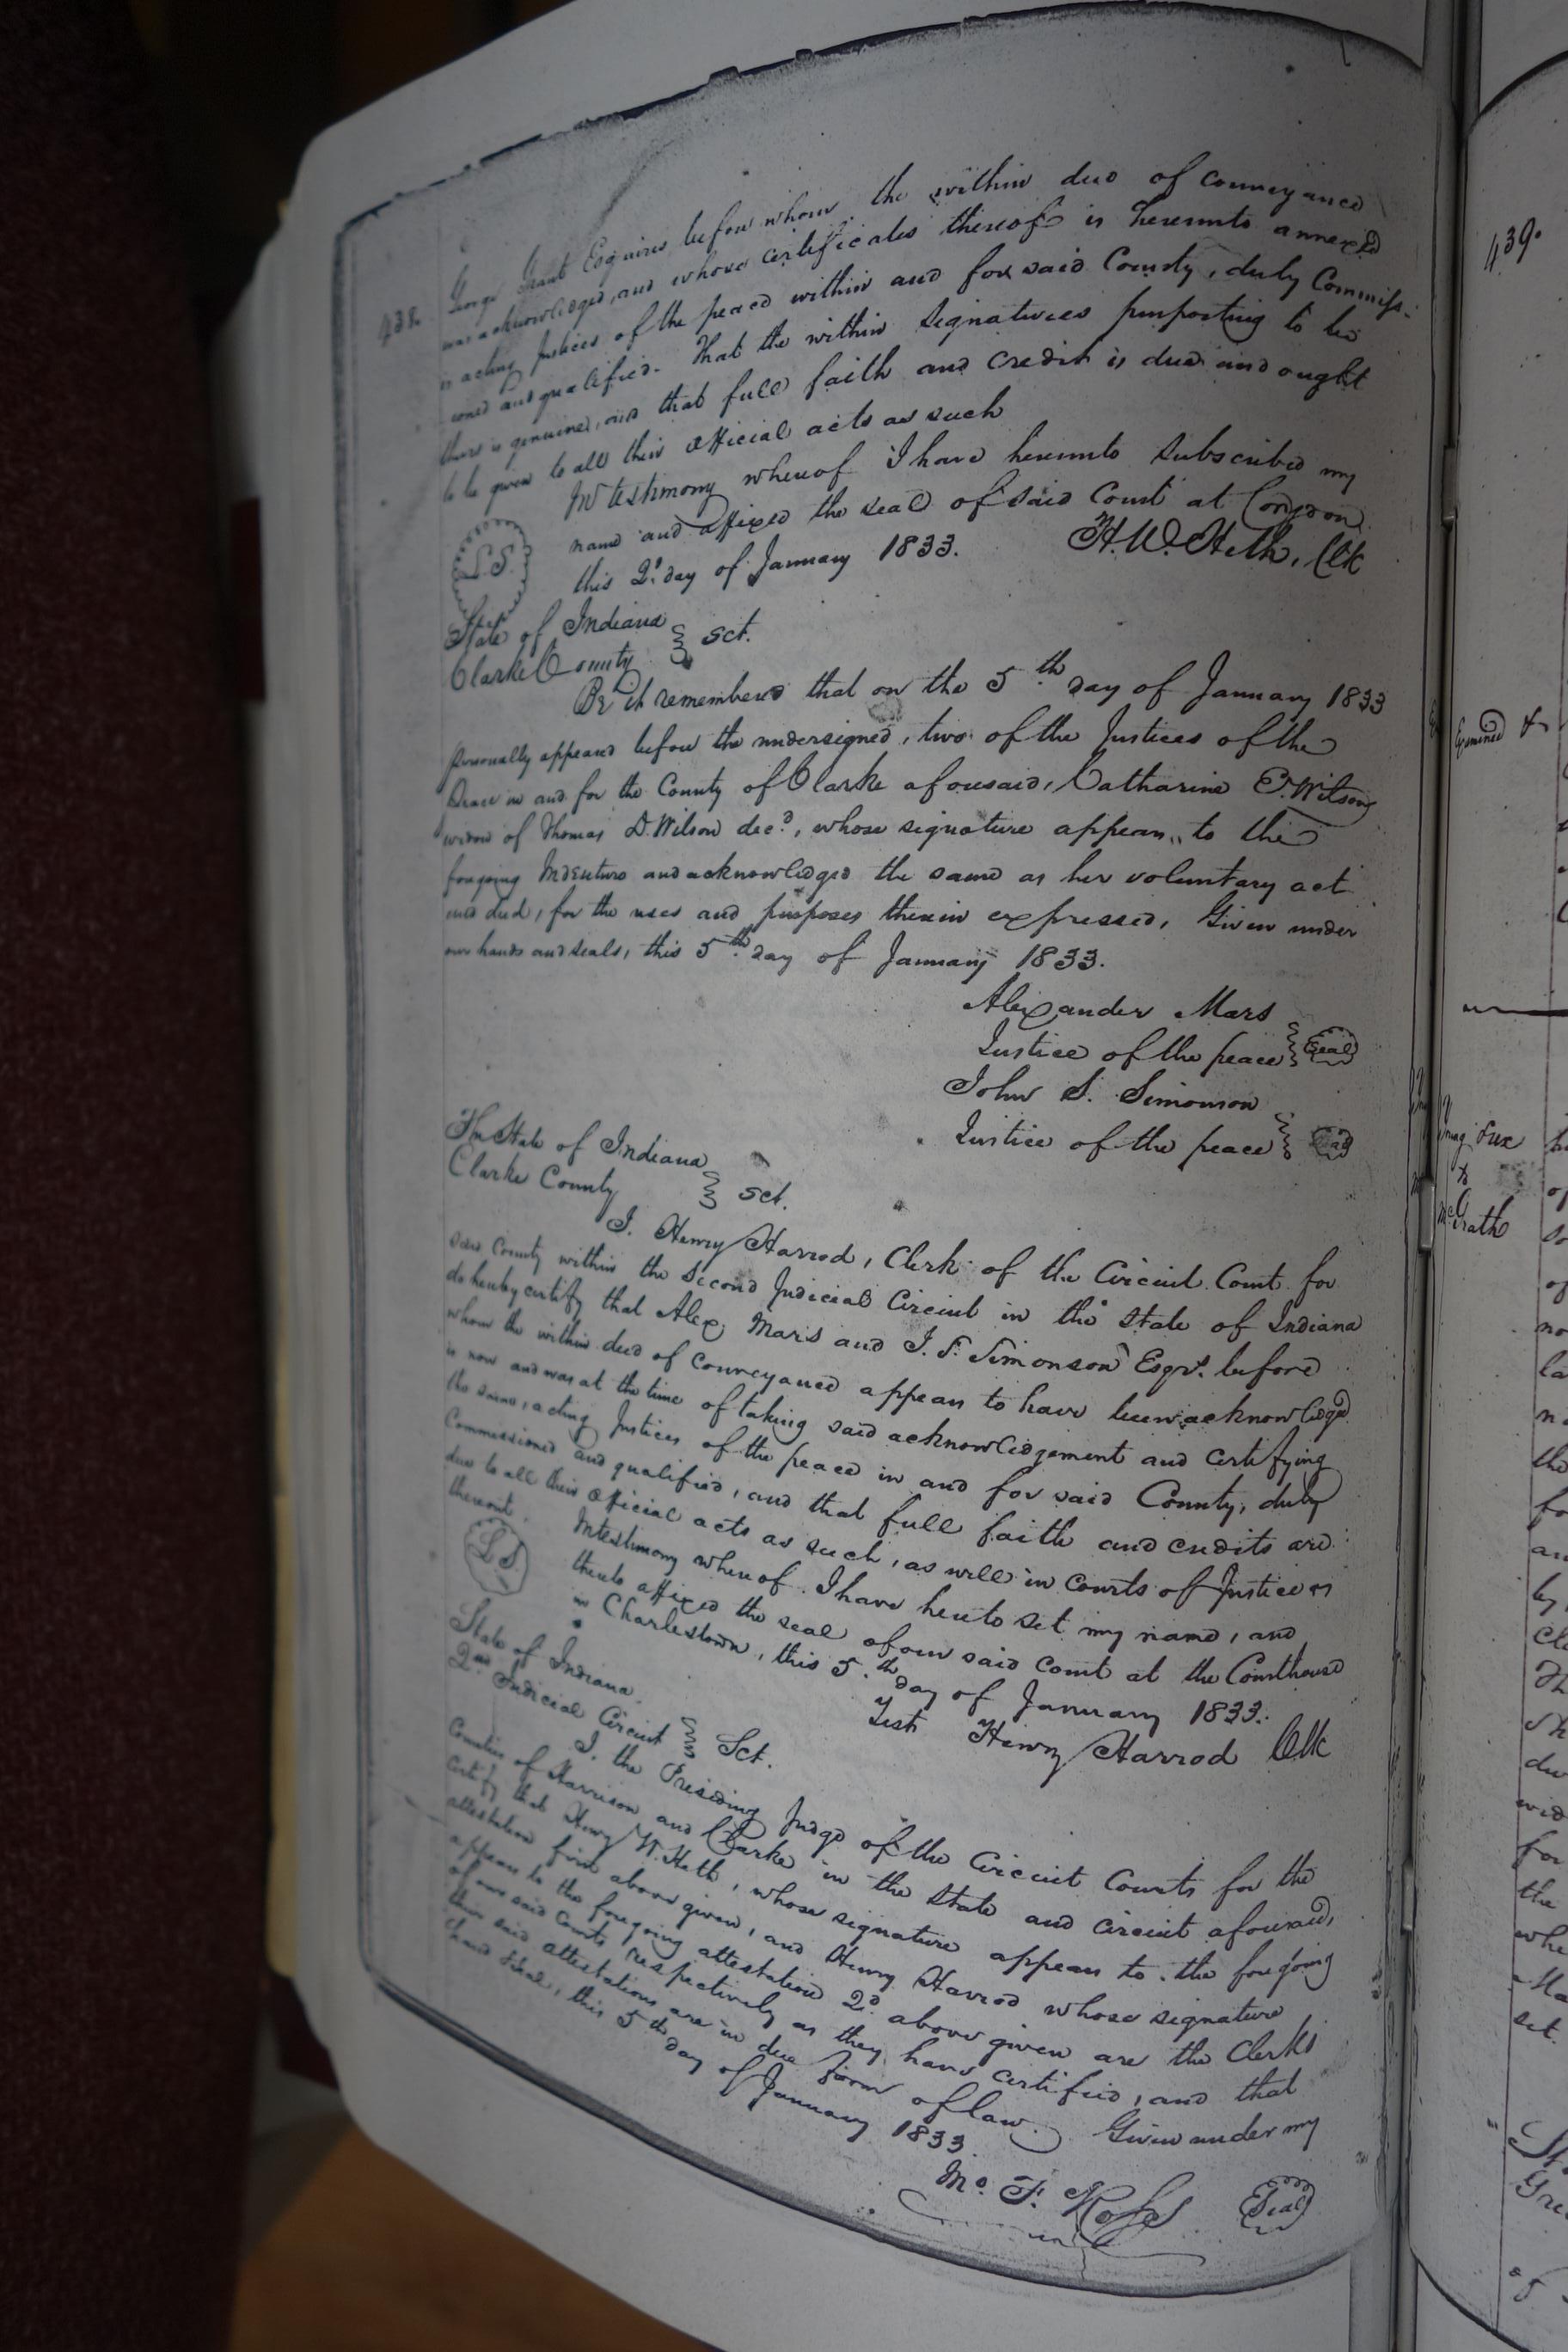 438.
George Grant Esquires before whom the within deed of conveyance
was acknowledged, and whose certificates thereof is hereunto annexed
is acting Justices of the peace within and for said County, duly Commiss-
ioned and qualified. That the within signatures purporting to be
theirs is genuine, and that full faith and credit is due and ought
to be given to all their official acts as such
In testimony whereof I have hereunto subscribed my
name and affixed the seal of said Court at Corydon
this 2d day of January 1833. H. W. Heth, Clk
L.S.
State of Indiana
Clarke County } Sct.
Be it remembered that on the 5th day of January 1833
personally appeared before the undersigned, two of the Justices of the
Peace in and for the County of Clarke aforesaid, Catharine E. Wilson
widow of Thomas D. Wilson decd, whose signature appears to the
foregoing Indenture and acknowledged the same as her voluntary act
and deed, for the uses and purposes therein expressed, Given under
our hands and seals, this 5th day of January 1833.
Alexander Mars
Justice of the peace } Seal
John S. Simonson
Justice of the peace } Seal
The State of Indiana
Clarke County } Sct.
I. Henry Harrod, Clerk of the Circuit Court for
said County within the Second Judicial Circuit in the State of Indiana
do hereby certify that Alex. Mars and J. S. Simonson Esqrs. before
whom the within deed of conveyance appears to have been acknowledged
is now and was at the time of taking said acknowledgement and certifying
the same, acting Justices of the peace in and for said County, duly
Commissioned and qualified, and that full faith and credits are
due to all their official acts as such, as well in Courts of Justice as
thereout.
In testimony whereof I have hereto set my name, and
thereto affixed the seal of our said Court at the Courthouse
in Charlestown, this 5th day of January 1833.
L.S.
Test Henry Harrod Clk
State of Indiana
2nd Judicial Circuit } Sct.
I. the Presiding Judge of the Circuit Courts for the
Counties of Harrison and Clarke in the State and circuit aforesaid,
Certify that Henry W. Heth, whose signature appears to the foregoing
attestation first above given, and Henry Harrod whose signature
appears to the foregoing attestation 2d above given are the Clerks
of our said Courts respectively as they have certified, and that
their said attestations are in due form of law. Given under my
hand & seal, this 5th day of January 1833.
Jno. F. Ross Seal
439.
Examined &
Young & ux
to
McGrath